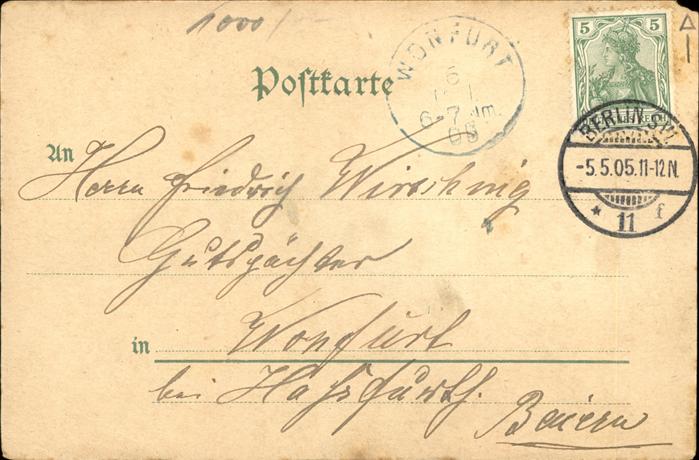 1000/
Postkarte
WONFURT
6
6-7 Nm.
05
5 5
BERLIN SW.
-5.5.05.11-12N.
* 11 f
An
Herrn Friedrich Wirsching
Gutspächter
in Wonfurt
bei Hassfurth.
Baiern